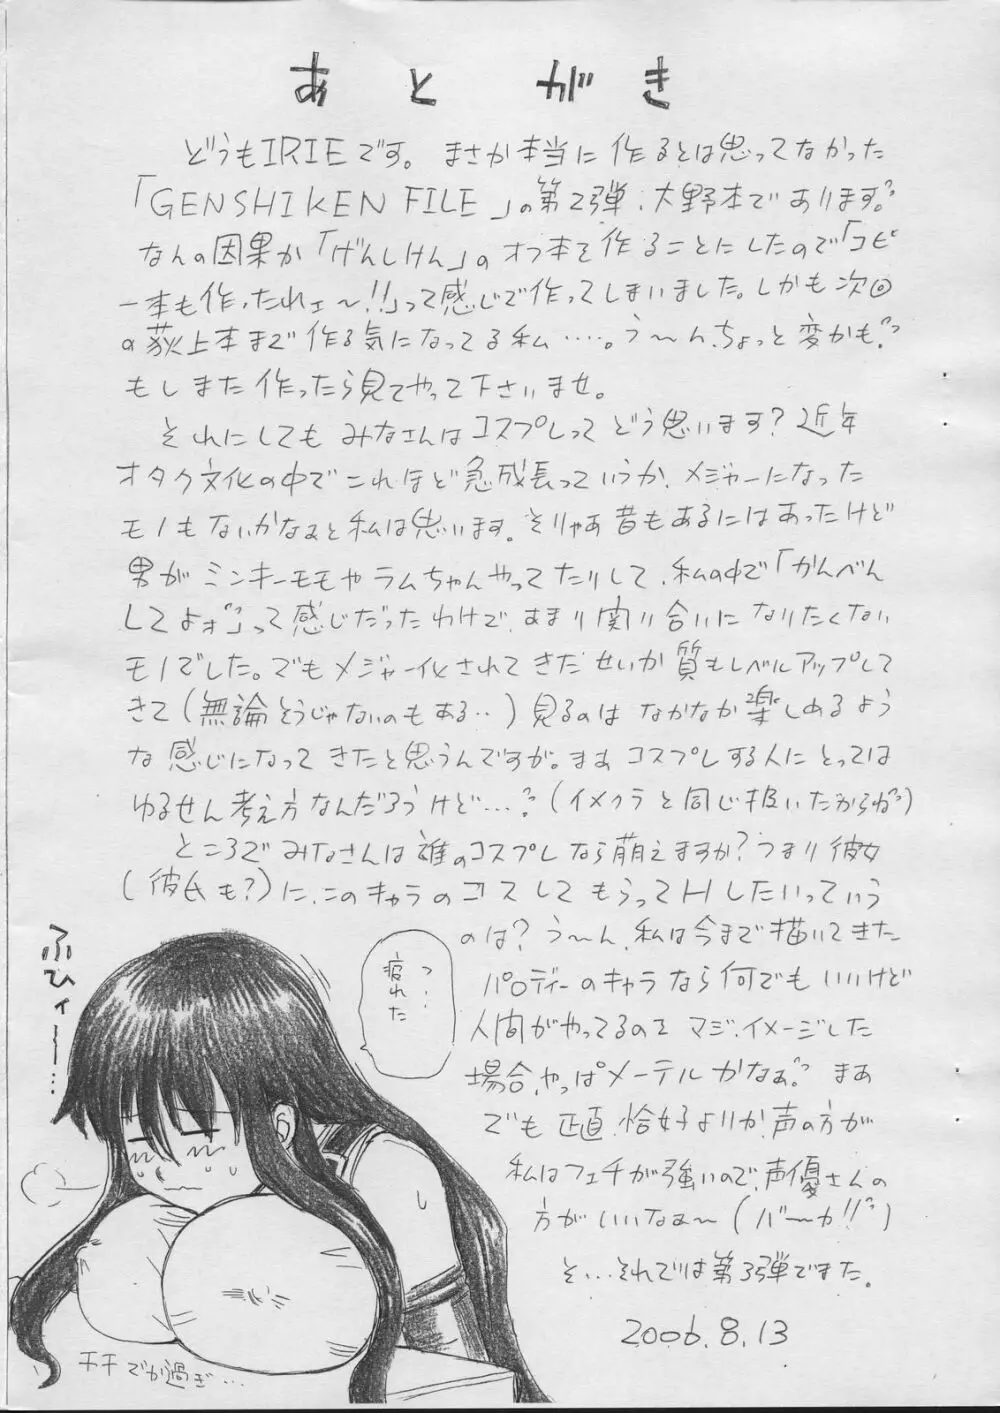 あとがき
どうもIRIEです。まさか本当に作るとは思ってなかった
「GENSHIKEN FILE」の第2弾、大野本であります。
なんの因果か「げんしけん」のオフ本を作ることにしたので「コピ
ー本も作ったれェ〜!!」って感じで作ってしまいました。しかも次回
の荻上本まで作る気になってる私……。う〜ん、ちょっと変かも。
もしまた作ったら見てやって下さいませ。
それにしてもみなさんはコスプレってどう思います?近年
オタク文化の中でこれほど急成長っていうか、メジャーになった
モノもないかなぁと私は思います。そりゃあ昔もあるにはあったけど
男がミンキーモモやラムちゃんやってたりして、私の中で「かんべん
してよォ」って感じだったわけで、あまり関り合いになりたくない
モノでした。でもメジャー化されてきたせいか質もレベルアップして
きて(無論そうじゃないのもある‥)見るのはなかなか楽しめるよう
な感じになってきたと思うんですが。まあコスプレする人にとっては
ゆるせん考え方なんだろうけど…。(イメクラと同じ扱いだからね)
ところでみなさんは誰のコスプレなら萌えますか?つまり彼女
(彼氏も?)に、このキャラのコスしてもらってHしたいっていう
のは?う〜ん、私は今まで描いてきた
パロディーのキャラなら何でもいいけど
人間がやってるのをマジ、イメージした
場合、やっぱメーテルかなぁ。まぁ
でも正直、恰好よりか、声の方が
私はフェチが強いので、声優さんの
方がいいなぁ〜(バーカ!!)
そ…それでは第3弾でまた。
2006.8.13
ふひィー…
つ‥
疲れた
チチでか過ぎ…